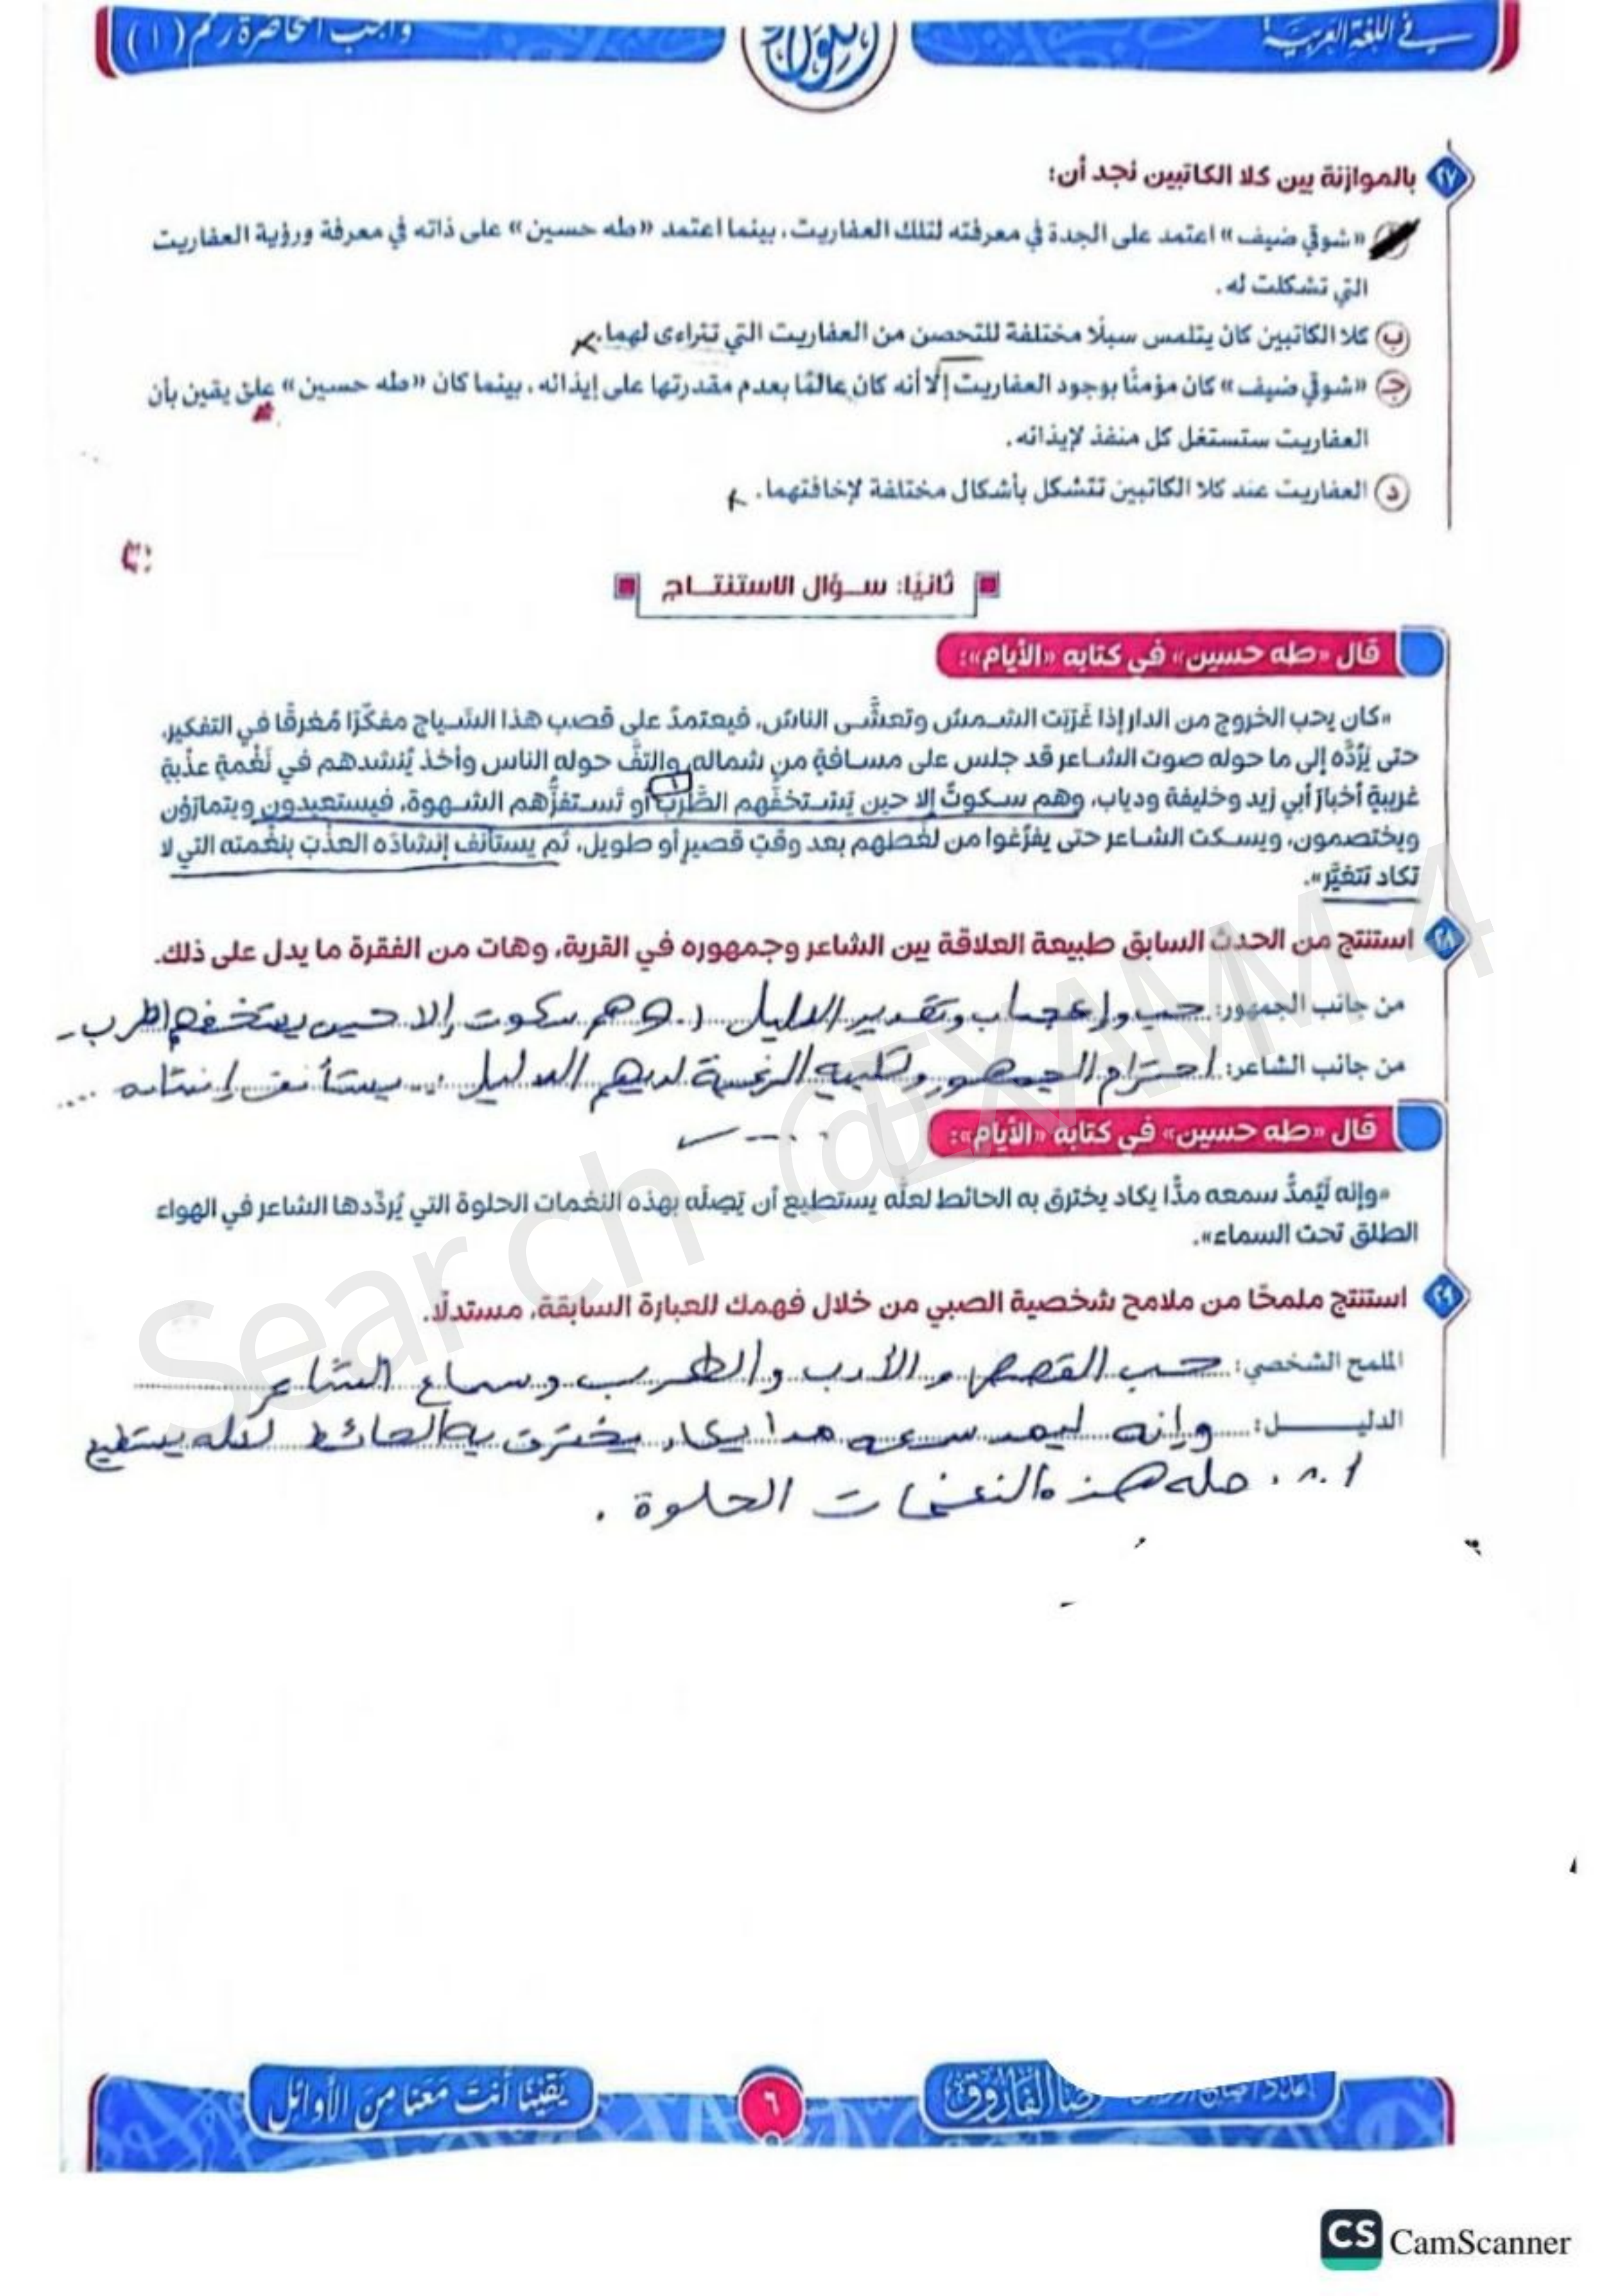 في اللغة العربية
واجب المحاضرة رقم (١)
٢٧ بالموازنة بين كلا الكاتبين نجد أن:
«شوقي ضيف» اعتمد على الجدة في معرفته لتلك العفاريت، بينما اعتمد «طه حسين» على ذاته في معرفة ورؤية العفاريت
التي تشكلت له.
ب كلا الكاتبين كان يتلمس سبلًا مختلفة للتحصن من العفاريت التي تتراءى لهما.
ج «شوقي ضيف» كان مؤمنًا بوجود العفاريت إلا أنه كان عالمًا بعدم مقدرتها على إيذائه، بينما كان «طه حسين» على يقين بأن
العفاريت ستستغل كل منفذ لإيذائه.
د العفاريت عند كلا الكاتبين تتشكل بأشكال مختلفة لإخافتهما.
ثانيًا: سؤال الاستنتاج
قال «طه حسين» في كتابه «الأيام»:
«كان يحب الخروج من الدار إذا غَرَبَت الشمسُ وتعشَّى الناسُ، فيعتمدُ على قصب هذا السِّياج مفكِّرًا مُغرقًا في التفكير،
حتى يَرُدَّه إلى ما حوله صوت الشاعر قد جلس على مسافةٍ من شماله، والتفَّ حوله الناس وأخذ يُنشدهم في نَغْمةٍ عذْبةٍ
غريبةٍ أخبارَ أبي زيد وخليفة ودياب، وهم سكوتٌ إلا حين يَستخفُّهم الطَّرَبُ أو تَستفزُّهم الشهوة، فيستعيدون ويتمارَوْن
ويختصمون، ويسكت الشاعر حتى يفرُغوا من لَغَطهم بعد وقتٍ قصيرٍ أو طويل، ثم يستأنف إنشادَه العذْبَ بنغْمته التي لا
تكاد تتغيَّر».
٢٨ استنتج من الحدث السابق طبيعة العلاقة بين الشاعر وجمهوره في القرية، وهات من الفقرة ما يدل على ذلك.
من جانب الجمهور: حب وإعجاب وتقدير الدليل وهم سكوت إلا حين يستخفهم الطرب
من جانب الشاعر: احترام الجمهور وتلبية الرغبة لديهم الدليل: يستأنف إنشاده ....
قال «طه حسين» في كتابه «الأيام»:
«وإنه لَيَمدُّ سمعه مدًّا يكاد يخترق به الحائط لعلَّه يستطيع أن يَصِلَه بهذه النغمات الحلوة التي يُردِّدها الشاعر في الهواء
الطلق تحت السماء».
٢٩ استنتج ملمحًا من ملامح شخصية الصبي من خلال فهمك للعبارة السابقة، مستدلًا.
الملمح الشخصي: حب القصص والأدب والطرب وسماع الشاعر
الدليل: وإنه ليمد سمعه مدا يكاد يخترق به الحائط لعله يستطيع
النغمات الحلوة.
Search @EXAMM4
يقينًا أنت معنا من الأوائل
٦
رضا الفاروق
CS CamScanner